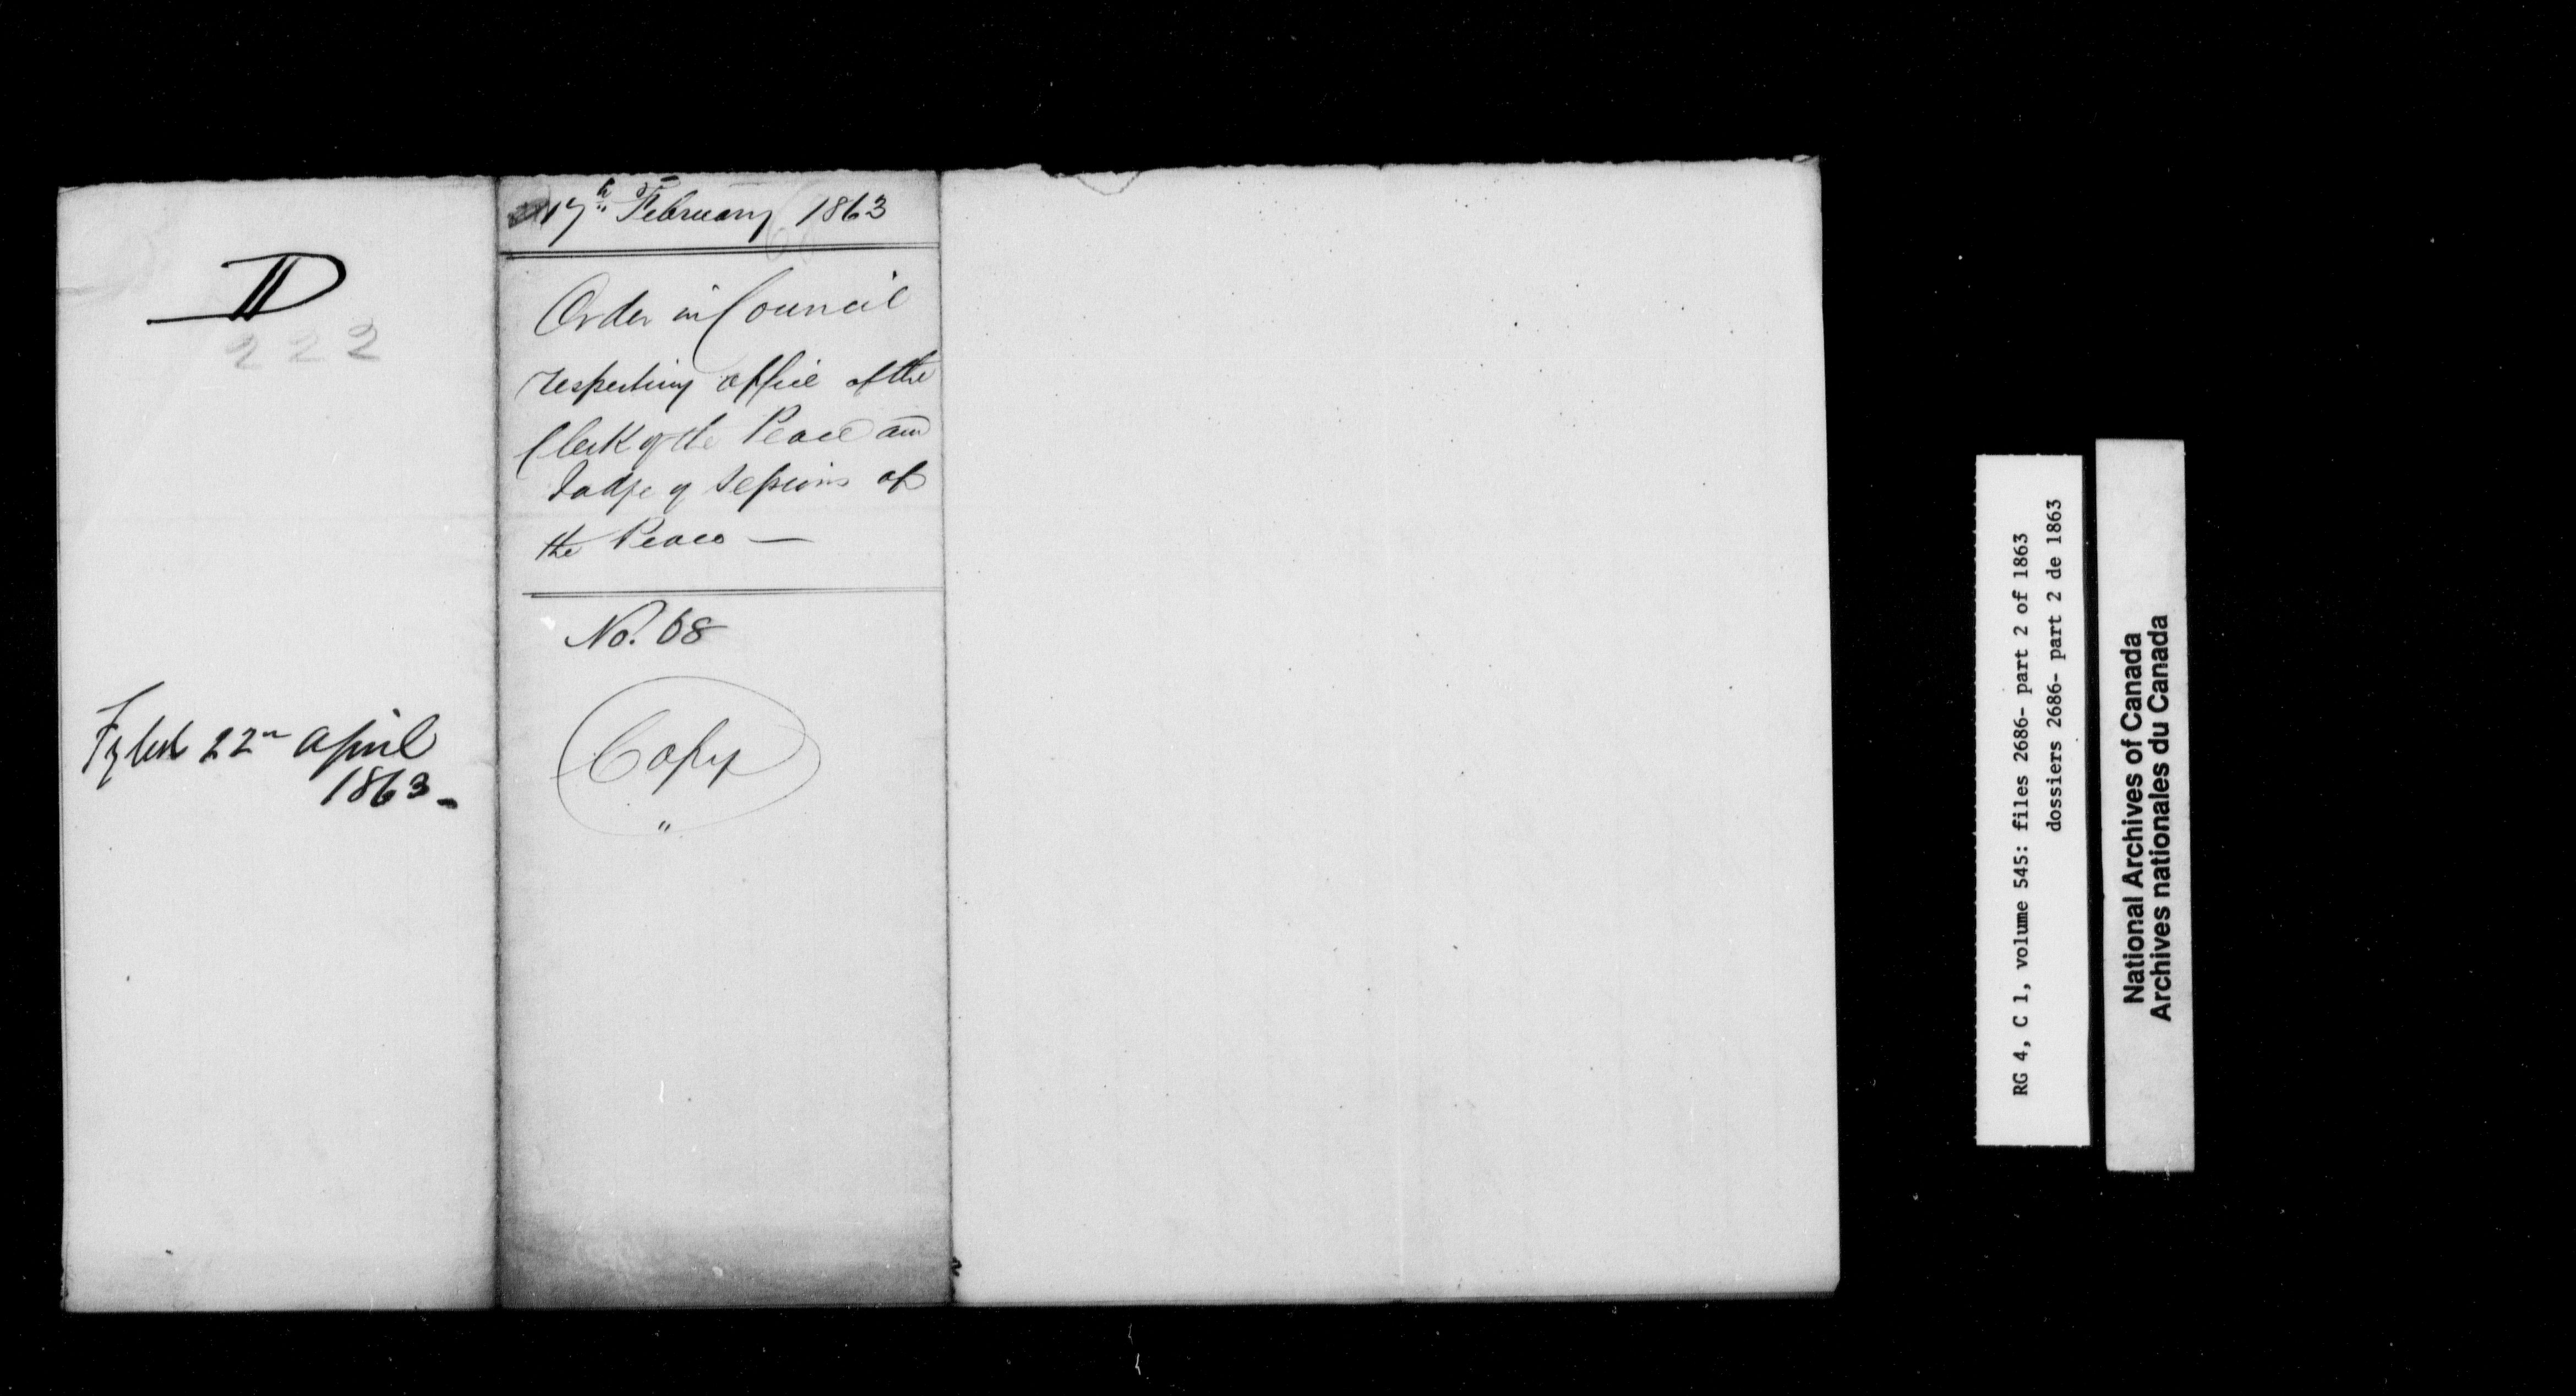 D
222
Fyled 22n April
1863
17th February 1863
Order in Council
respecting office of the
Clerk of the Peace and
Judge of Sessions of
the Peace —
No. 68
Copy
RG 4, C 1, volume 545: files 2686- part 2 of 1863
dossiers 2686- part 2 de 1863
National Archives of Canada
Archives nationales du Canada